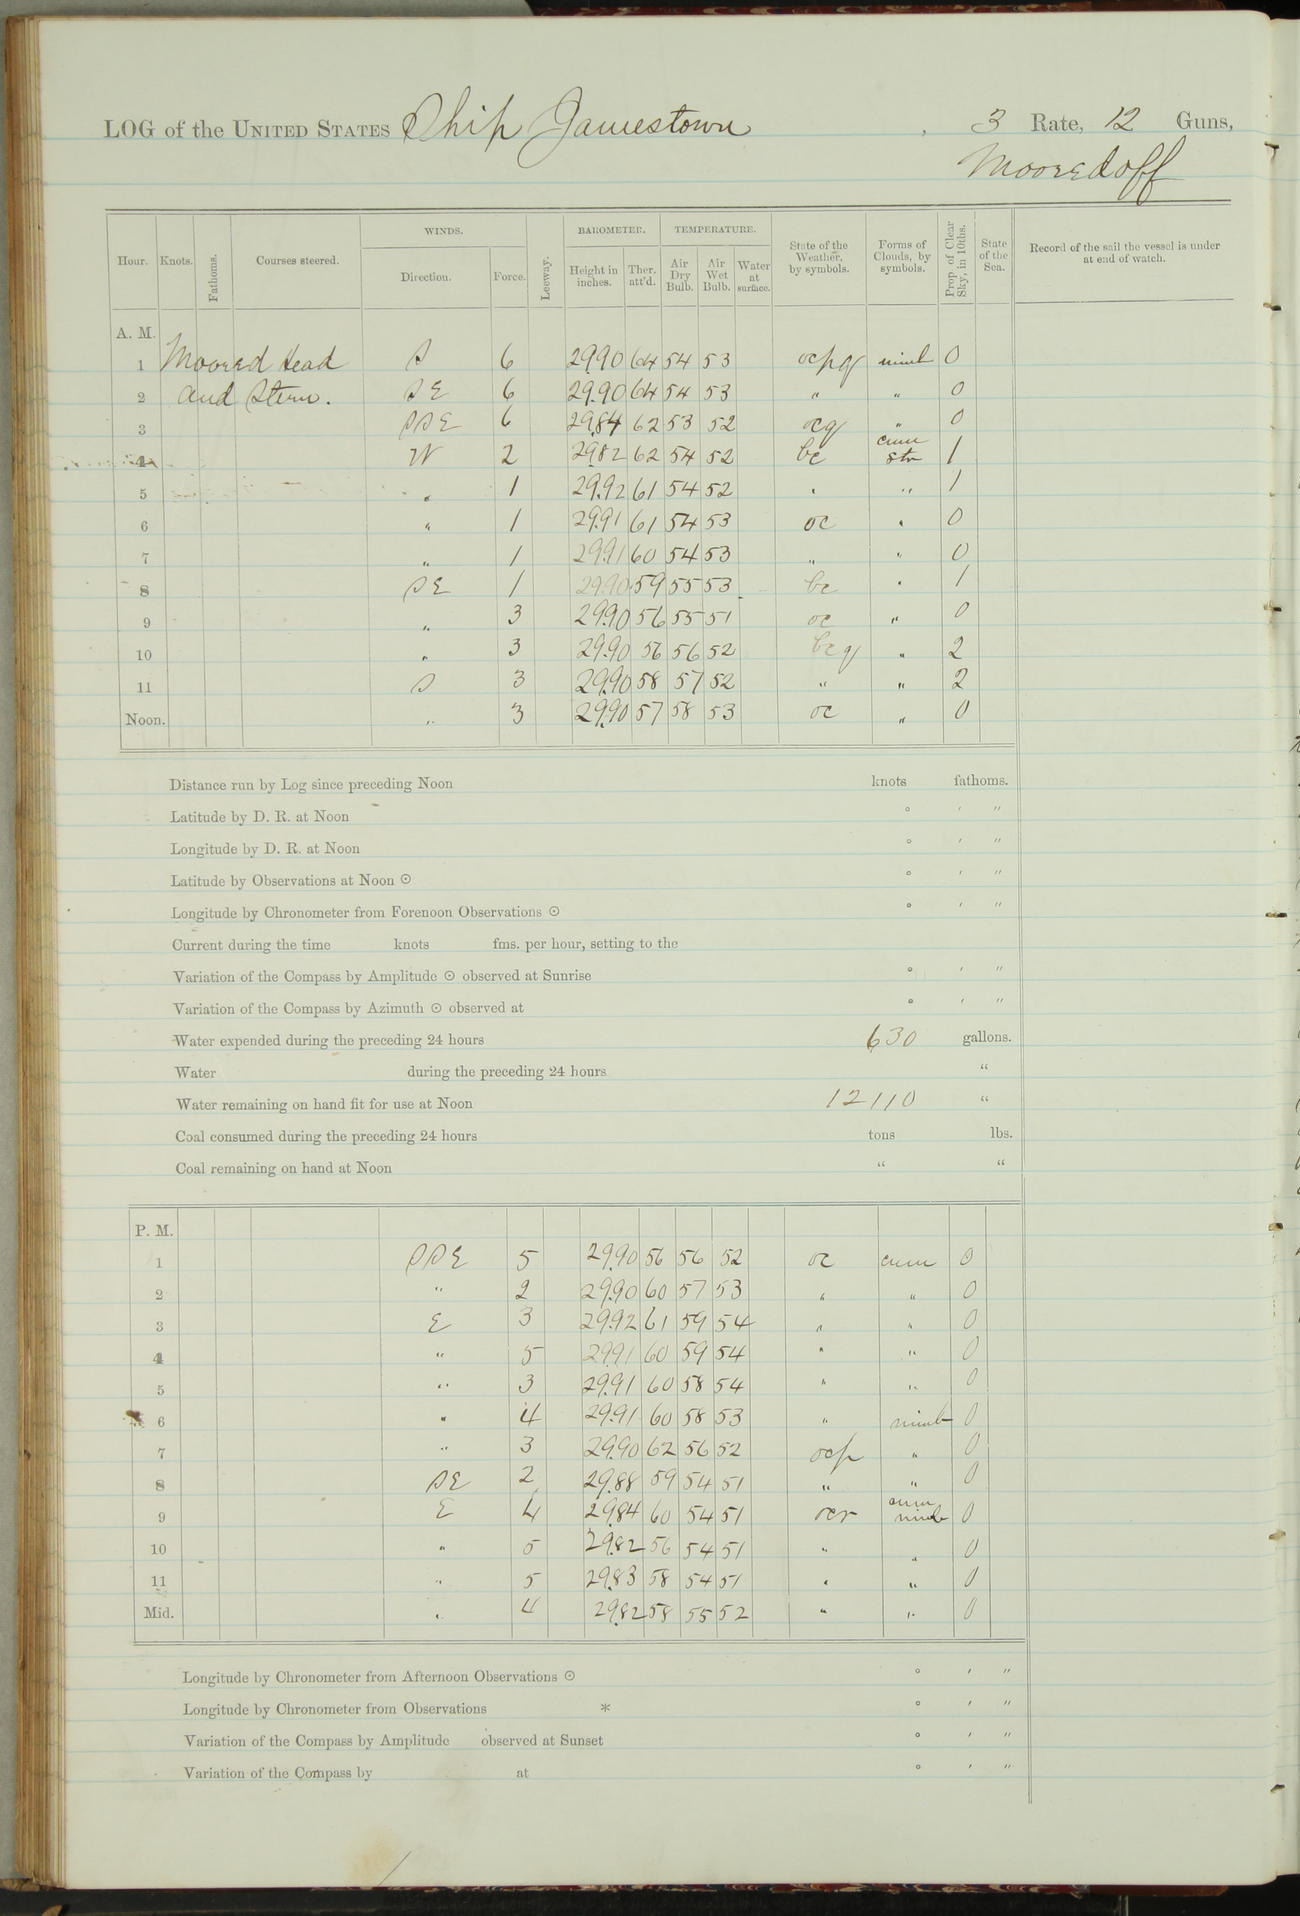 LOG of the UNITED STATES Ship Jamestown , 3 Rate, 12 Guns,
Moored off
Hour. Knots. Fathoms. Courses steered. WINDS. Direction. Force. Leeway. BAROMETER. Height in inches. Ther. att'd. TEMPERATURE. Air Dry Bulb. Air Wet Bulb. Water at surface. State of the Weather, by symbols. Forms of Clouds, by symbols. Prop. of Clear Sky, in 10ths. State of the Sea. Record of the sail the vessel is under at end of watch.
A. M.
1 Moored Head S 6 29.90 64 54 53 ocpq nimb 0
2 and Stern. SE 6 29.90 64 54 53 " " 0
3 SSE 6 29.84 62 53 52 ocq " 0
4 W 2 29.82 62 54 52 bc cum str 1
5 " 1 29.92 61 54 52 " " 1
6 " 1 29.91 61 54 53 oc " 0
7 " 1 29.91 60 54 53 " " 0
8 SE 1 29.90 59 55 53 bc " 1
9 " 3 29.90 56 55 51 oc " 0
10 " 3 29.90 56 56 52 bcq " 2
11 S 3 29.90 58 57 52 " " 2
Noon. " 3 29.90 57 58 53 oc " 0
Distance run by Log since preceding Noon knots fathoms.
Latitude by D. R. at Noon ° ′ ″
Longitude by D. R. at Noon ° ′ ″
Latitude by Observations at Noon ⊙ ° ′ ″
Longitude by Chronometer from Forenoon Observations ⊙ ° ′ ″
Current during the time knots fms. per hour, setting to the
Variation of the Compass by Amplitude ⊙ observed at Sunrise ° ′ ″
Variation of the Compass by Azimuth ⊙ observed at ° ′ ″
Water expended during the preceding 24 hours 630 gallons.
Water during the preceding 24 hours "
Water remaining on hand fit for use at Noon 12110 "
Coal consumed during the preceding 24 hours tons lbs.
Coal remaining on hand at Noon " "
P. M.
1 SSE 5 29.90 56 56 52 oc cum 0
2 " 2 29.90 60 57 53 " " 0
3 E 3 29.92 61 59 54 " " 0
4 " 5 29.91 60 59 54 " " 0
5 " 3 29.91 60 58 54 " " 0
6 " 4 29.91 60 58 53 " nimb 0
7 " 3 29.90 62 56 52 ocp " 0
8 SE 2 29.88 59 54 51 " " 0
9 E 4 29.84 60 54 51 ocr cum nimb 0
10 " 5 29.82 56 54 51 " " 0
11 " 5 29.83 58 54 51 " " 0
Mid. " 4 29.82 58 55 52 " " 0
Longitude by Chronometer from Afternoon Observations ⊙ ° ′ ″
Longitude by Chronometer from Observations * ° ′ ″
Variation of the Compass by Amplitude observed at Sunset ° ′ ″
Variation of the Compass by at ° ′ ″